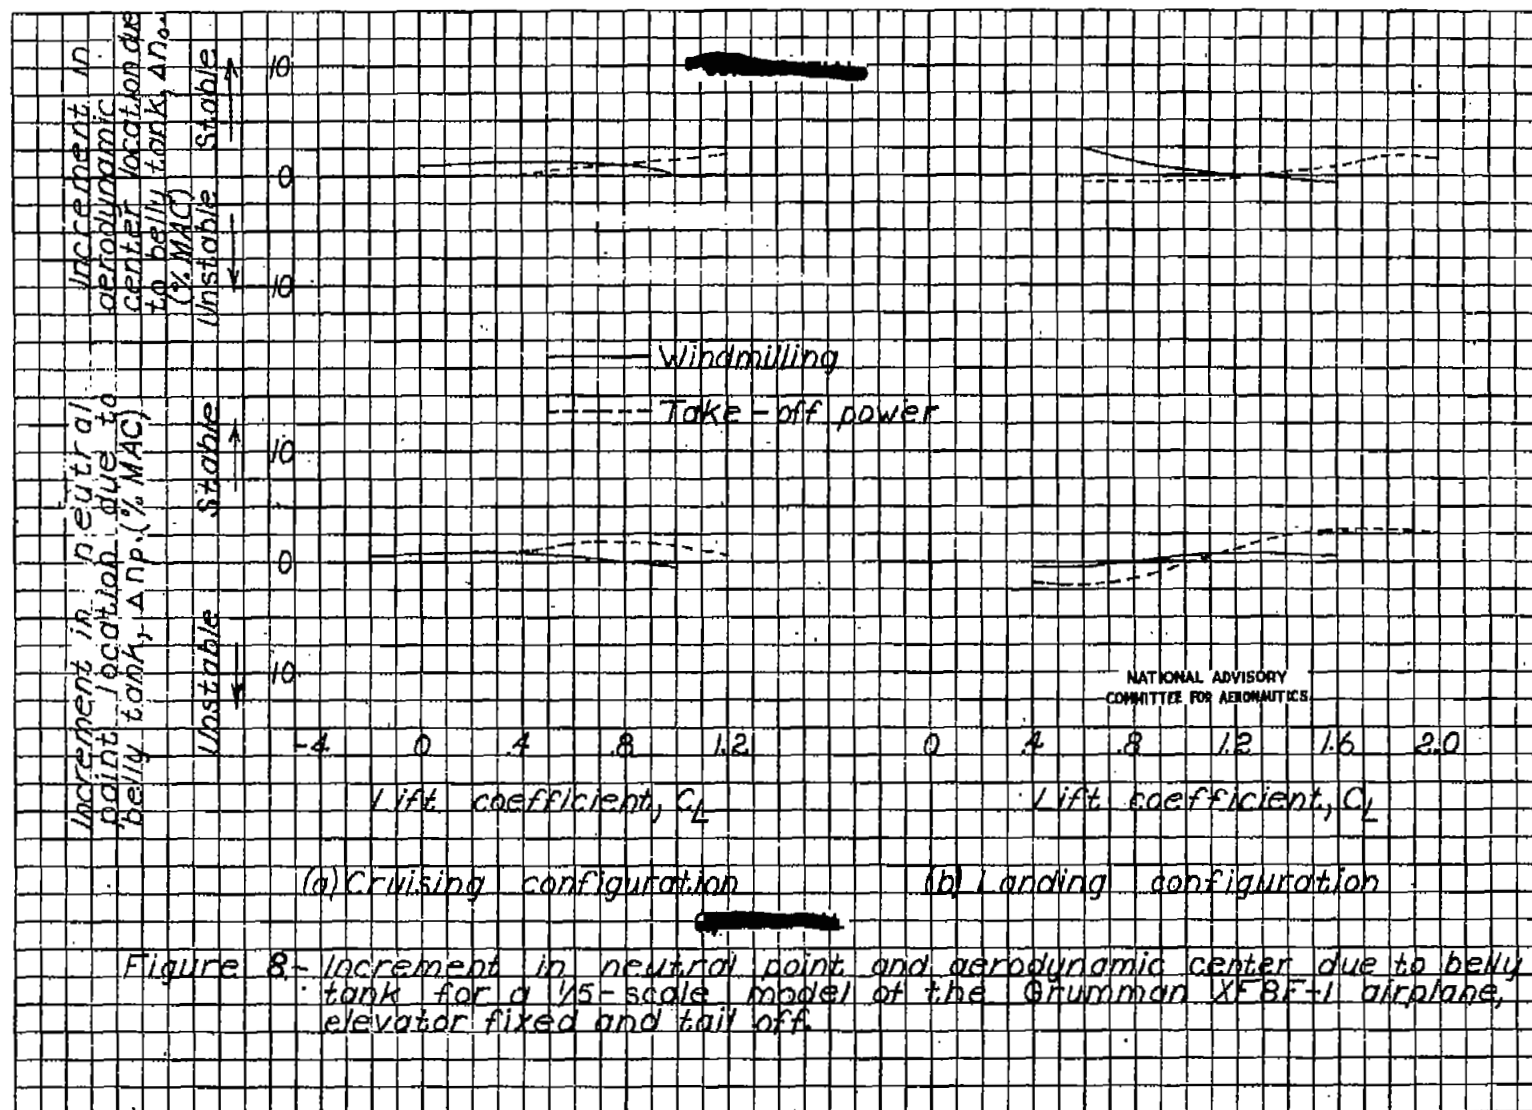 Increment in
aerodynamic
center location due
to belly tank, Δn₀.
(% MAC)
Unstable Stable
10
0
10
Windmilling
Take-off power
Increment in neutral
point location due to
belly tank, Δ np. (% MAC)
Unstable Stable
10
0
10
NATIONAL ADVISORY
COMMITTEE FOR AERONAUTICS
-.4 0 .4 .8 1.2 0 .4 .8 1.2 1.6 2.0
Lift coefficient, C_L Lift coefficient, C_L
(a) Cruising configuration (b) Landing configuration
Figure 8- Increment in neutral point and aerodynamic center due to belly
tank for a 1/5-scale model of the Grumman XF8F-1 airplane,
elevator fixed and tail off.